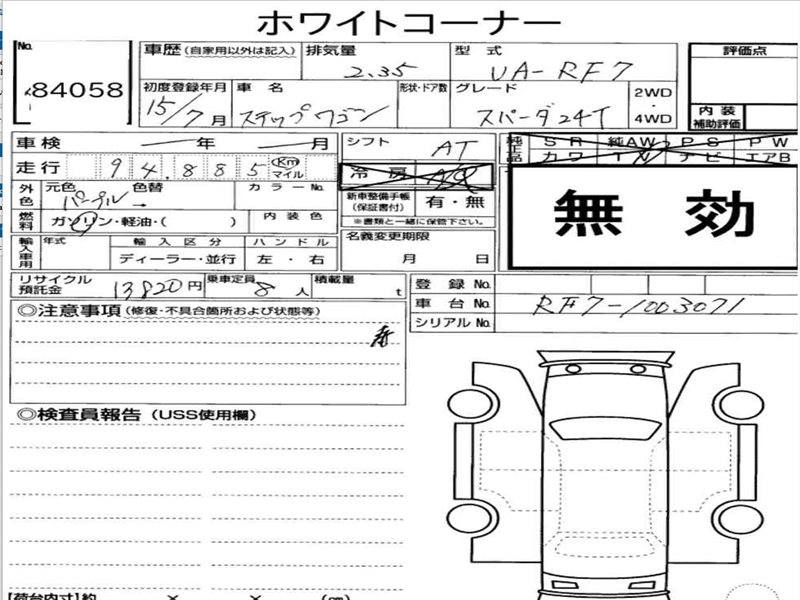 ホワイトコーナー
No.
84058
車歴 (自家用以外は記入)
排気量
2.35
型 式
UA-RF7
評価点
初度登録年月
15/7月
車 名
ステップワゴン
形状・ドア数
グレード
スパーダ24T
2WD
・
4WD
内 装
補助評価
車検 年 月
シフト
AT
純正品
S R 純AW P S P W
カワ TV ナビ エアB
走行 9 4,8 8 5 Km
マイル
冷 房 A/C
外色
元色
パープル →
色替
カラーNo.
新車整備手帳
(保証書付)
有・無
※書類と一緒に保管下さい。
無 効
燃料
ガソリン・軽油・( )
内 装 色
輸入車用
年式
輸 入 区 分
ディーラー・並行
ハ ン ド ル
左 ・ 右
名義変更期限
月 日
リサイクル
預託金
13820円
乗車定員
8人
積載量
t
登 録 No.
車 台 No.
RF7-1003071
シリアル No.
◎注意事項 (修復・不具合箇所および状態等)
◎検査員報告 (USS使用欄)
【荷台内寸】約 × × (cm)